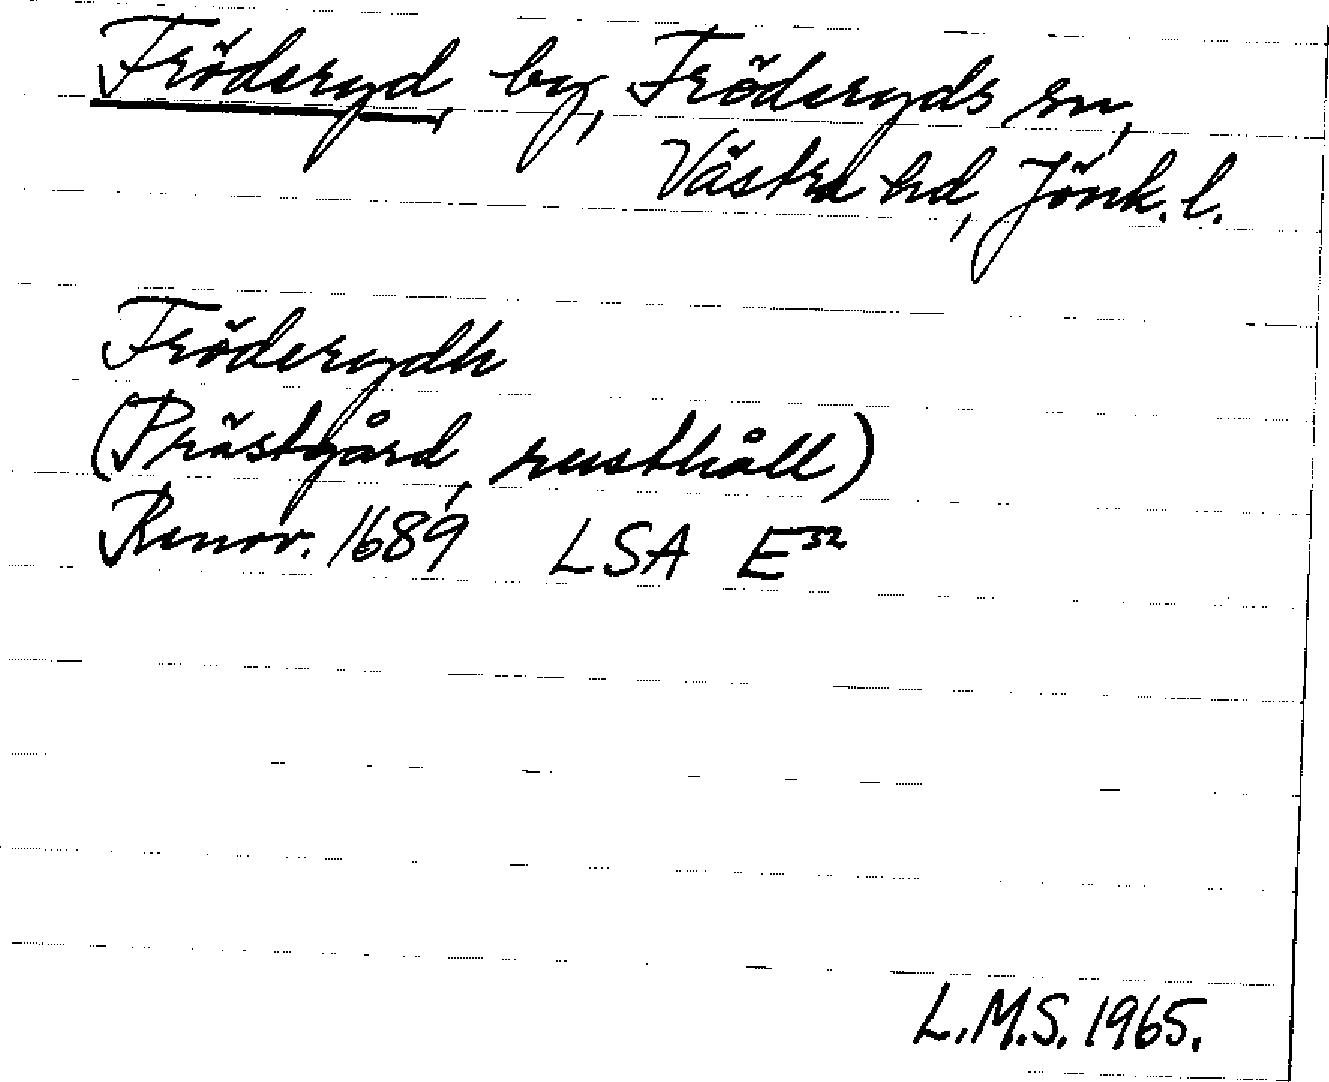 Fröderyd, by, Fröderyds sn,
Västra hd, Jönk. l.
Fröderydh
(Prästgård, rusthåll)
Renov. 1689 LSA E³²
L.M.S. 1965.